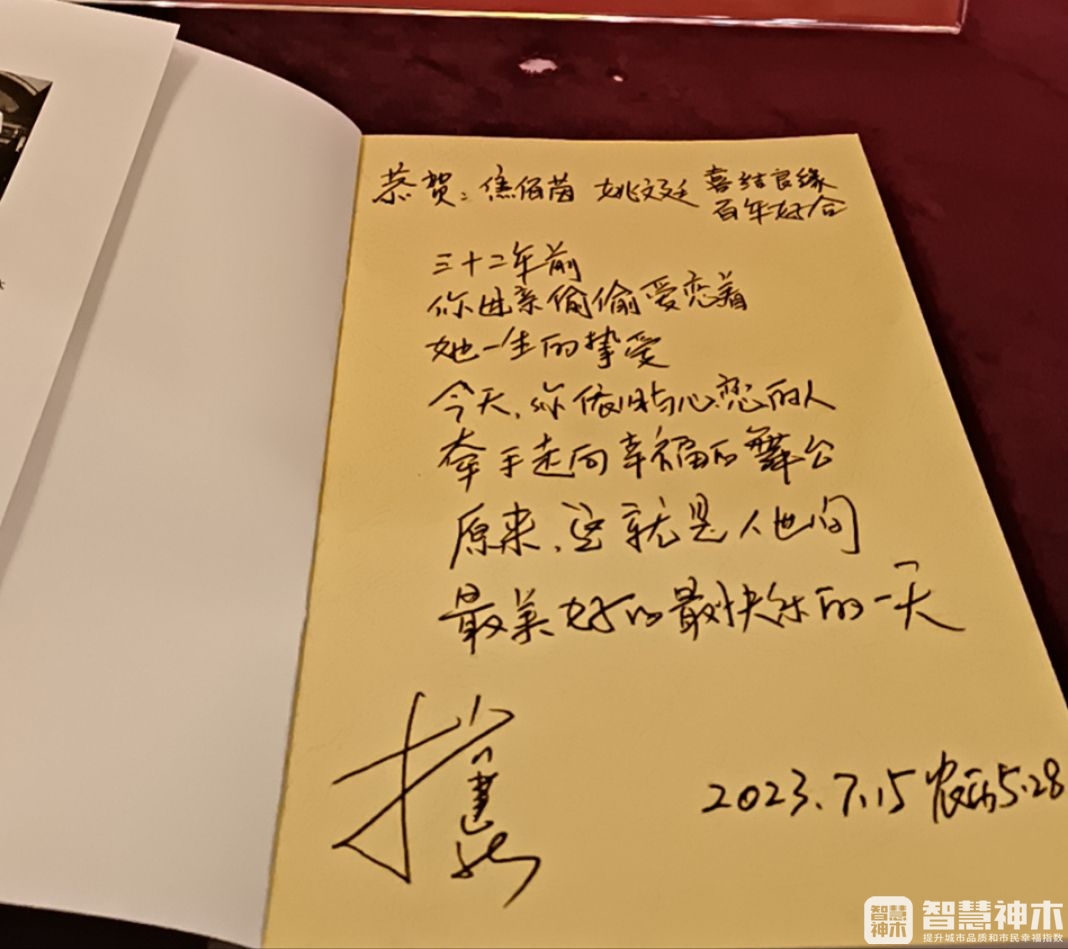 恭贺：焦佰茵 姚文廷 喜结良缘
百年好合
三十二年前
你进亲偷偷爱恋着
她一生的挚爱
今天，你依旧与心恋的人
牵手走向幸福的舞台
原来，这就是人世间
最美好的最快乐的一天
2023.7.15 农历5.28
智慧神木
智慧神木
提升城市品质和市民幸福指数